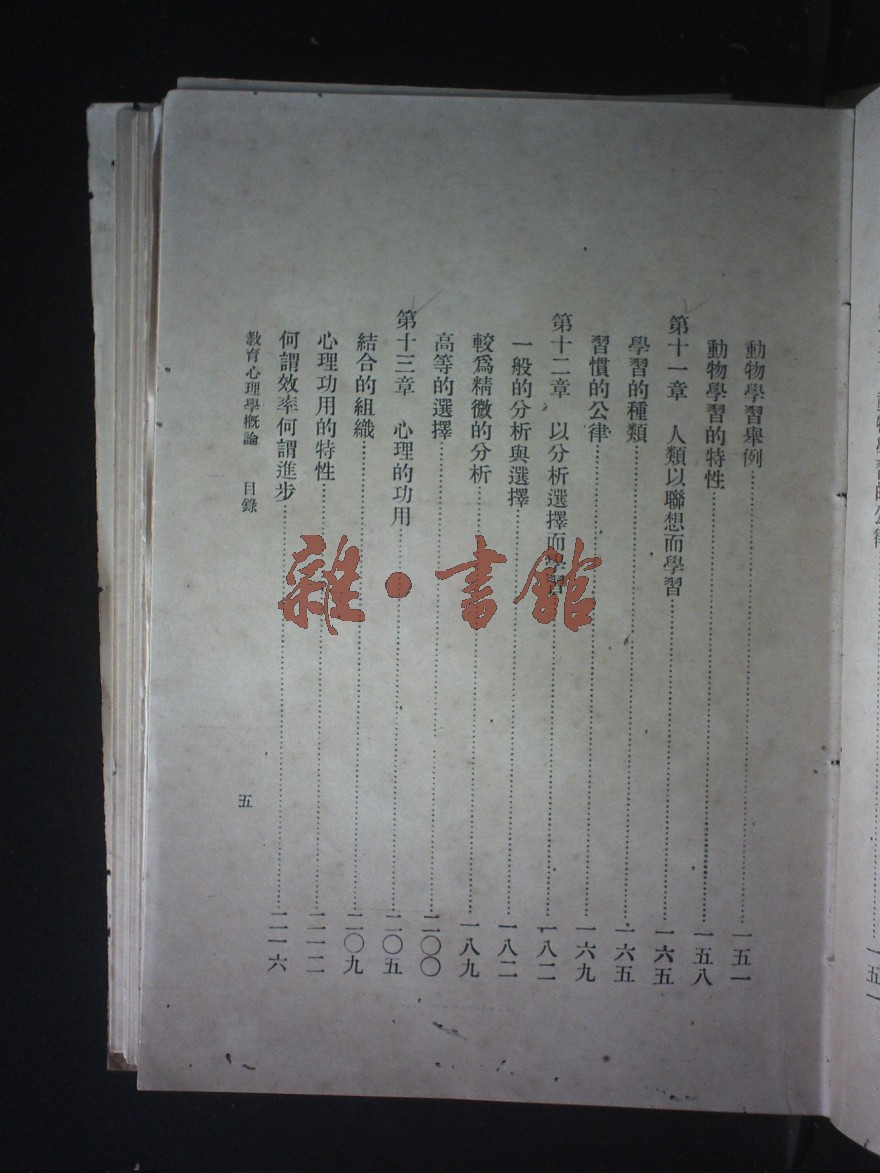 動物學習舉例……一五一
動物學習的特性……一五八
第十一章 人類以聯想而學習……一六五
學習的種類……一六五
習慣的公律……一六九
第十二章 以分析選擇而學習……一八二
一般的分析與選擇……一八二
較爲精微的分析……一八九
高等的選擇……二〇〇
第十三章 心理的功用……二〇五
結合的組織……二〇九
心理功用的特性……二一二
何謂效率何謂進步……二一六
教育心理學概論 目錄
五
雜·書館